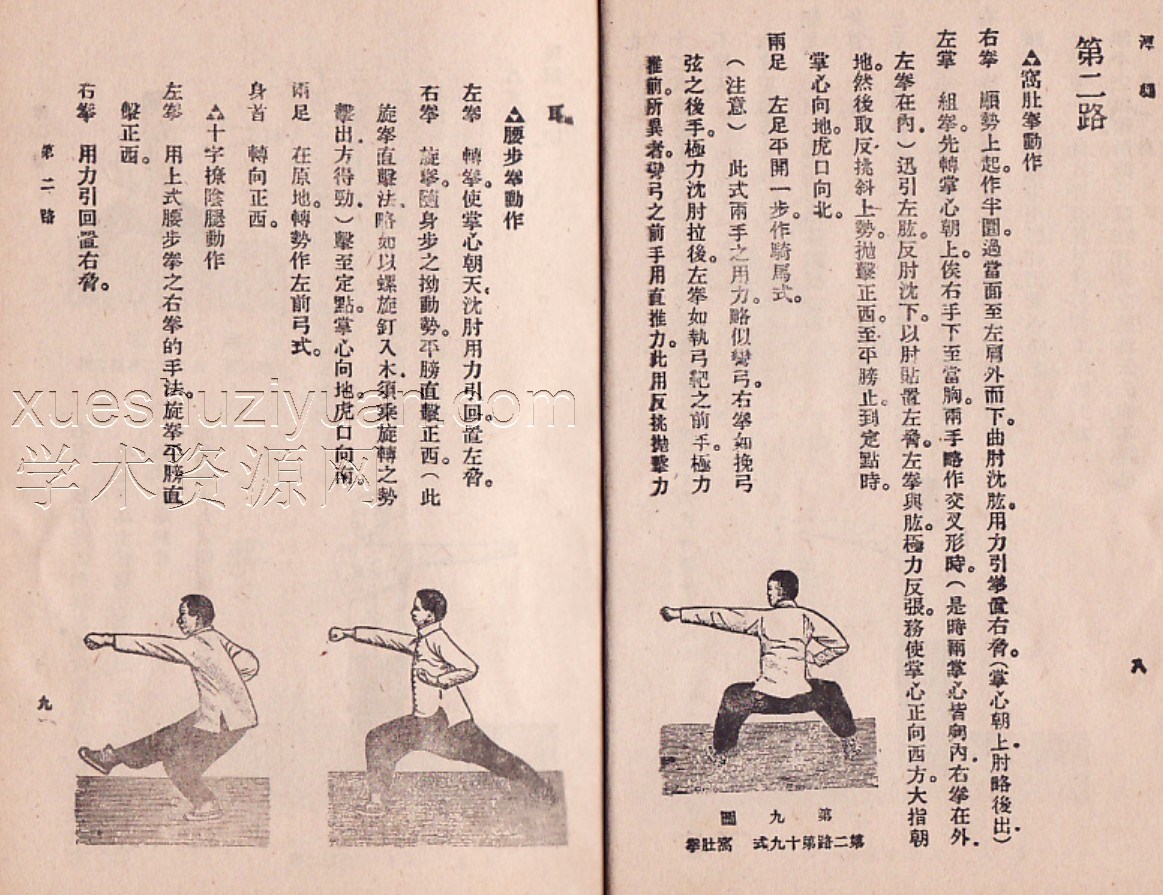 潭腿
第二路
窩肚拳動作
右拳　順勢上起。作半圓。過當面至左肩外而下。曲肘沈肱。用力引拳置右脅。(掌心朝上。肘略後出)
左掌　組拳。先轉掌心朝上。俟右手下至當胸。兩手略作交叉形時。(是時兩掌心皆朝內。右拳在外。
左拳在內)迅引左肱。反肘沈下。以肘貼置左脅。左拳與肱。極力反張。務使掌心正向西方。大指朝
地。然後取反挑斜上勢。拋擊正西。至平膀止。到定點時。
掌心向地。虎口向北。
兩足　左足平開一步。作騎馬式。
(注意)　此式兩手之用力。略似彎弓。右拳如挽弓
弦之後手。極力沈肘拉後。左拳如執弓靶之前手。極力
推前。所異者。彎弓之前手用直推力。此用反挑拋擊力
八
第九圖
第二路第十九式　窩肚拳
耳。
腰步拳動作
左拳　轉拳。使掌心朝天。沈肘用力引回。置左脅。
右拳　旋拳。隨身步之拗動勢。平膀直擊正西。(此
旋拳直擊法。略如以螺旋釘入木。須乘旋轉之勢
擊出。方得勁。)擊至定點。掌心向地。虎口向南。
兩足　在原地。轉勢作左前弓式。
身首　轉向正西。
十字撩陰腿動作
左拳　用上式腰步拳之右拳的手法。旋拳平膀直
擊正西。
右拳　用力引回置右脅。
第二路
九
xueshuziyuan.com
学术资源网